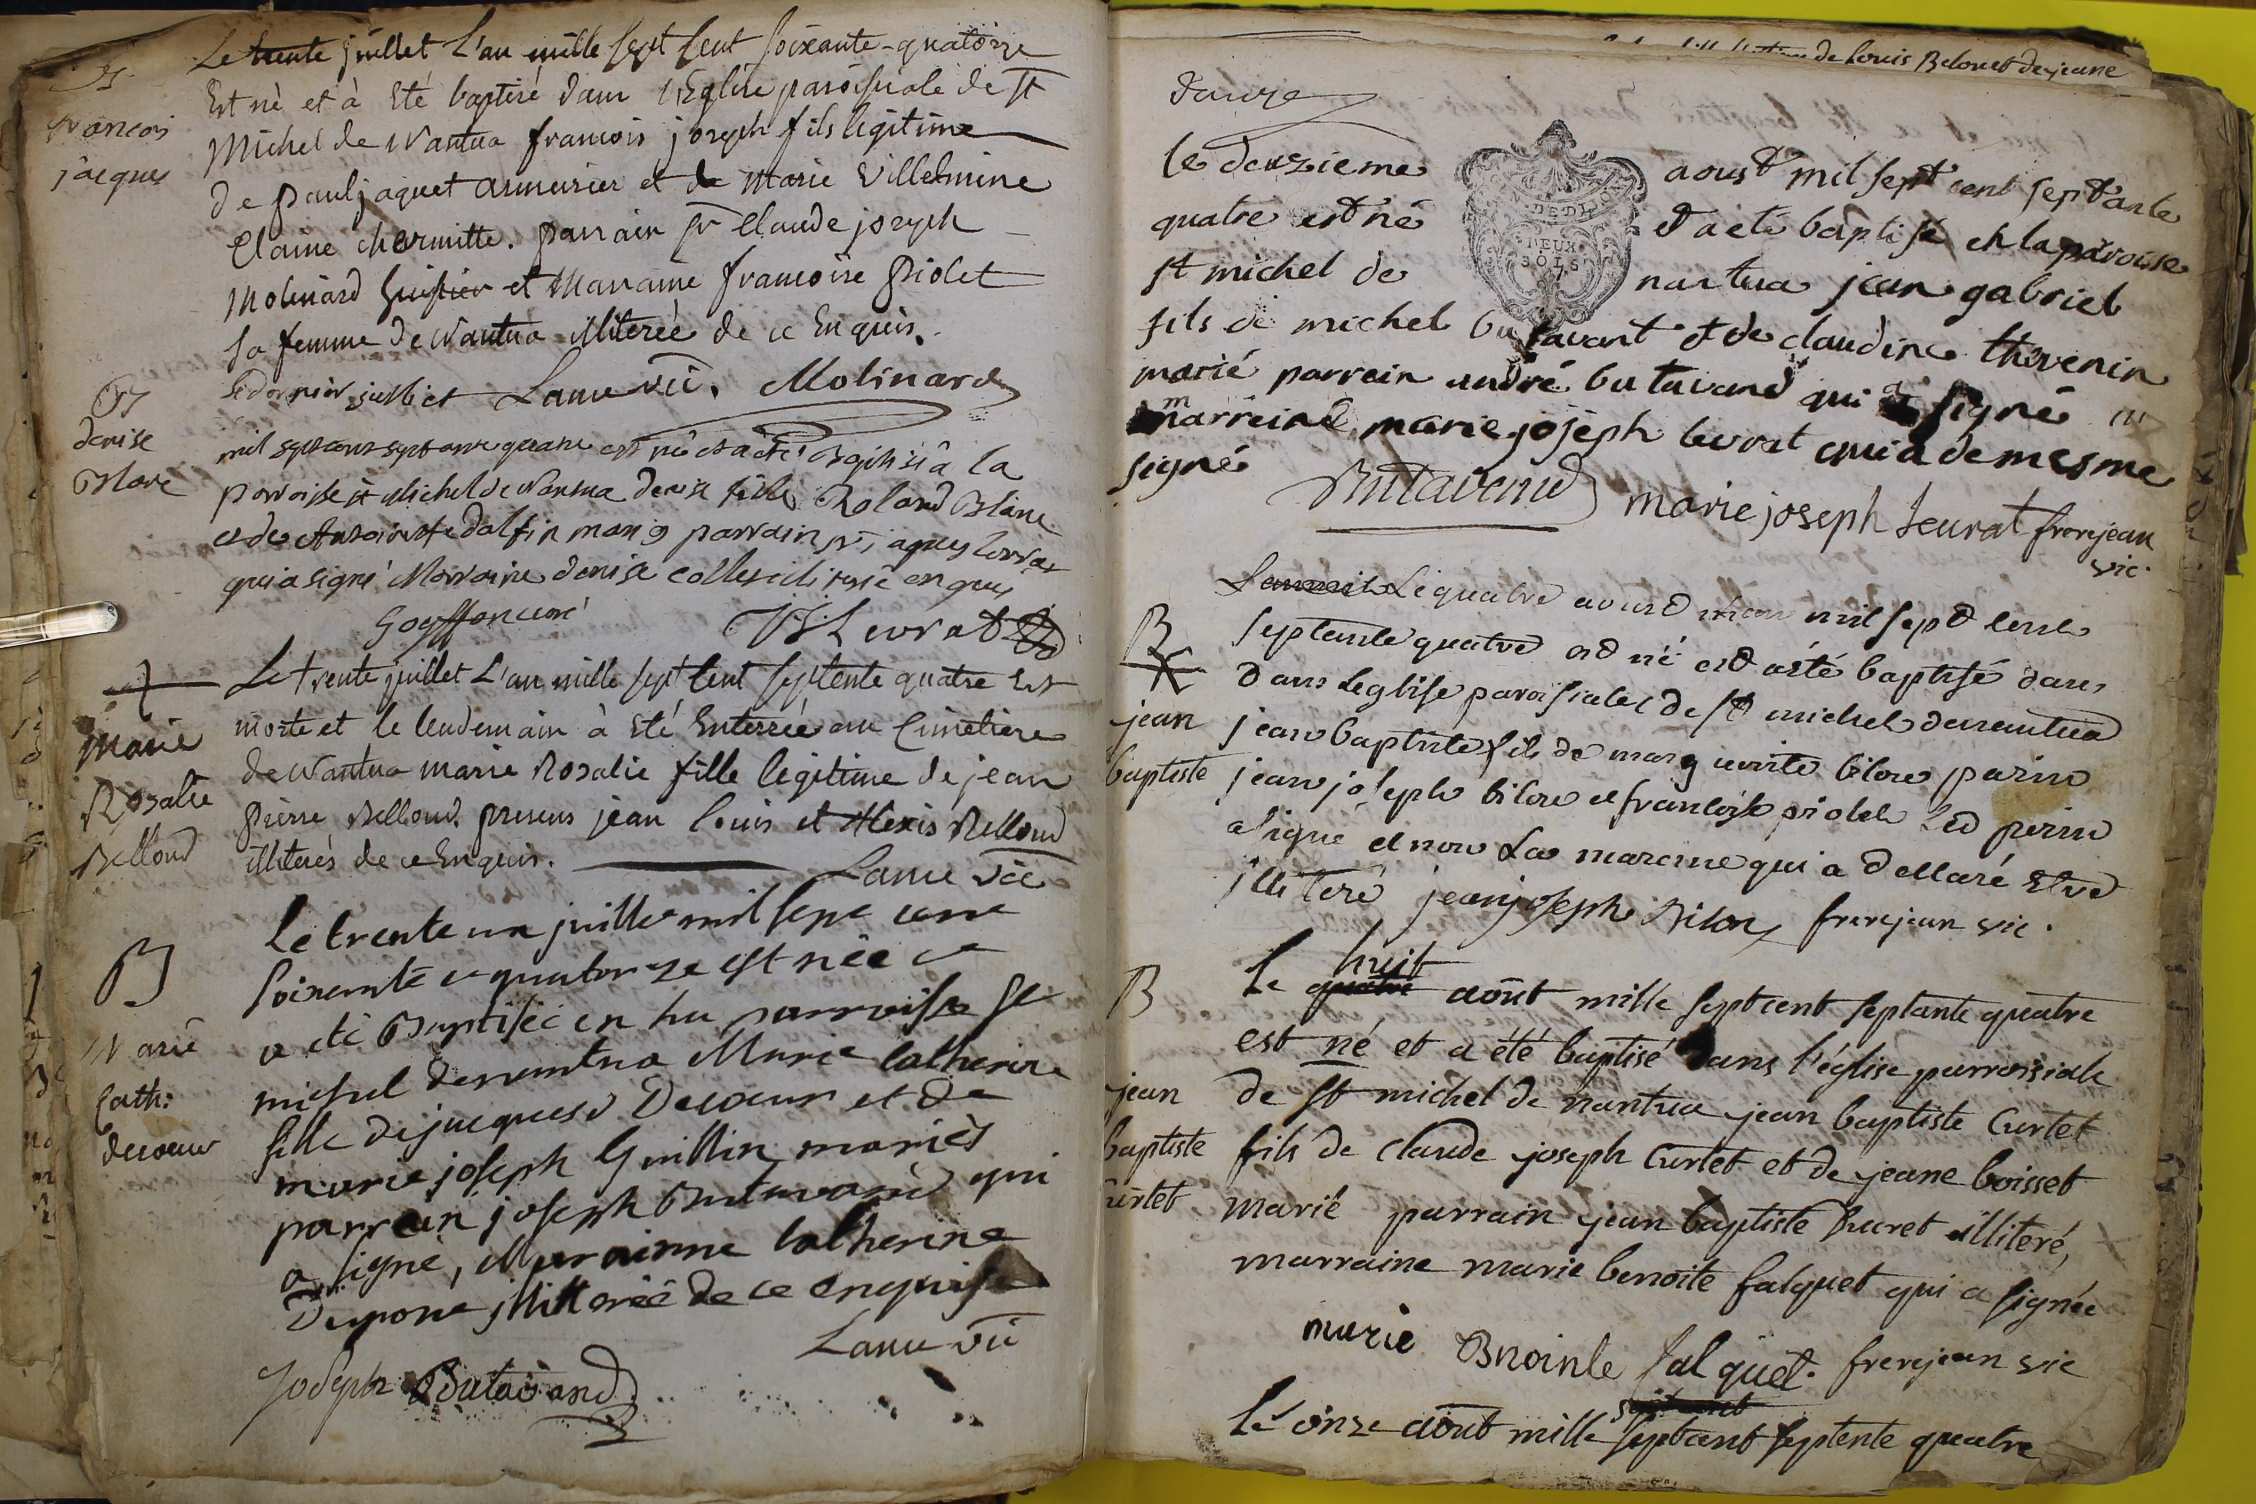 B
francois
jacques
Le trente juillet L'an mille sept cent soixante-quatorze
Est né et à Eté baptisé dans L'Eglise paroissiale de St
Michel de Nantua francois joseph fils légitime
de paul jaquet armurier et de Marie Villelmine
Elaine chermitte. parrain Sr Claude joseph
Molinard huissier et Maraine francoise Piolet
sa femme de Nantua illiterée de ce Enquis.
Lanu vic. Molinard
B
denise
Blanc
Le dernier juillet
mil sept cent septante quatre est née et a été Baptisée à la
parroisse st Michel de Nantua denise fille Roland Blanc
et de Antoinette dalfin mariés parrain Sr jaques Levrat
qui a signé Marraine denise collet illiterée enquis
Goyffon curé JBLevrat
Marie
Rosalie
Belloud
Le trente juillet L'an mille sept cent septente quatre Est
morte et le lendemain à Eté Enterrée au Cimetiere
de Nantua marie Rosalie fille légitime de jean
pierre Belloud. presens jean louis et Alexis Belloud
illiterés de ce Enquis.
Lanu vic
B
Marie
Cath:
decoeur
Le trente un juillet mil sept cent
soixante et quatorze est née et
a eté Baptisée en la parroisse St
michel denantua Marie Catherine
fille de jacques Decoeur et de
marie joseph Guillin mariés
parrain joseph Butavand qui
a signé, Marainne Catherine
Dupont illiterée de ce enquise
Lanu vic
Joseph Butavand
de Louis Belouet de jeane
le deuzieme aoust mil sept cent septante
quatre est né et a eté baptisé en la paroise
st michel de nantua jean gabriel
fils de michel butavant et de claudine thevenin
marié parrain andré butavand qui a signé
marreine marie joseph leurat qui a de mesme
signé
Butavend marie joseph Leurat frerejean
vic.
DE DIJON
DEUX
SOLS
B
jean
baptiste
Le quatre aoust mil sept cent
septante quatre est né est a été baptisé dans
dans Leglise paroissiale de st michel denantua
jean baptiste fils de marguerite bilon parin
jean joseph bilon et francoise piolet Led parin
a signé et non La mareine qui a dellaré Etre
jlliteré jean joseph Bilon frerejean vic.
B
jean
baptiste
curtet
huit
Le quatre août mille septcent septante quatre
est né et a été baptisé dans l'église parroissiale
de st michel de nantua jean baptiste Curtet
fils de claude joseph Curtet et de jeane boisset
marié parrain jean baptiste Ducret illiteré,
marraine marie benoite falquet qui a signée
marie Bnointe falquet. frerejean vic
Le onze août mille septcent septente quatre